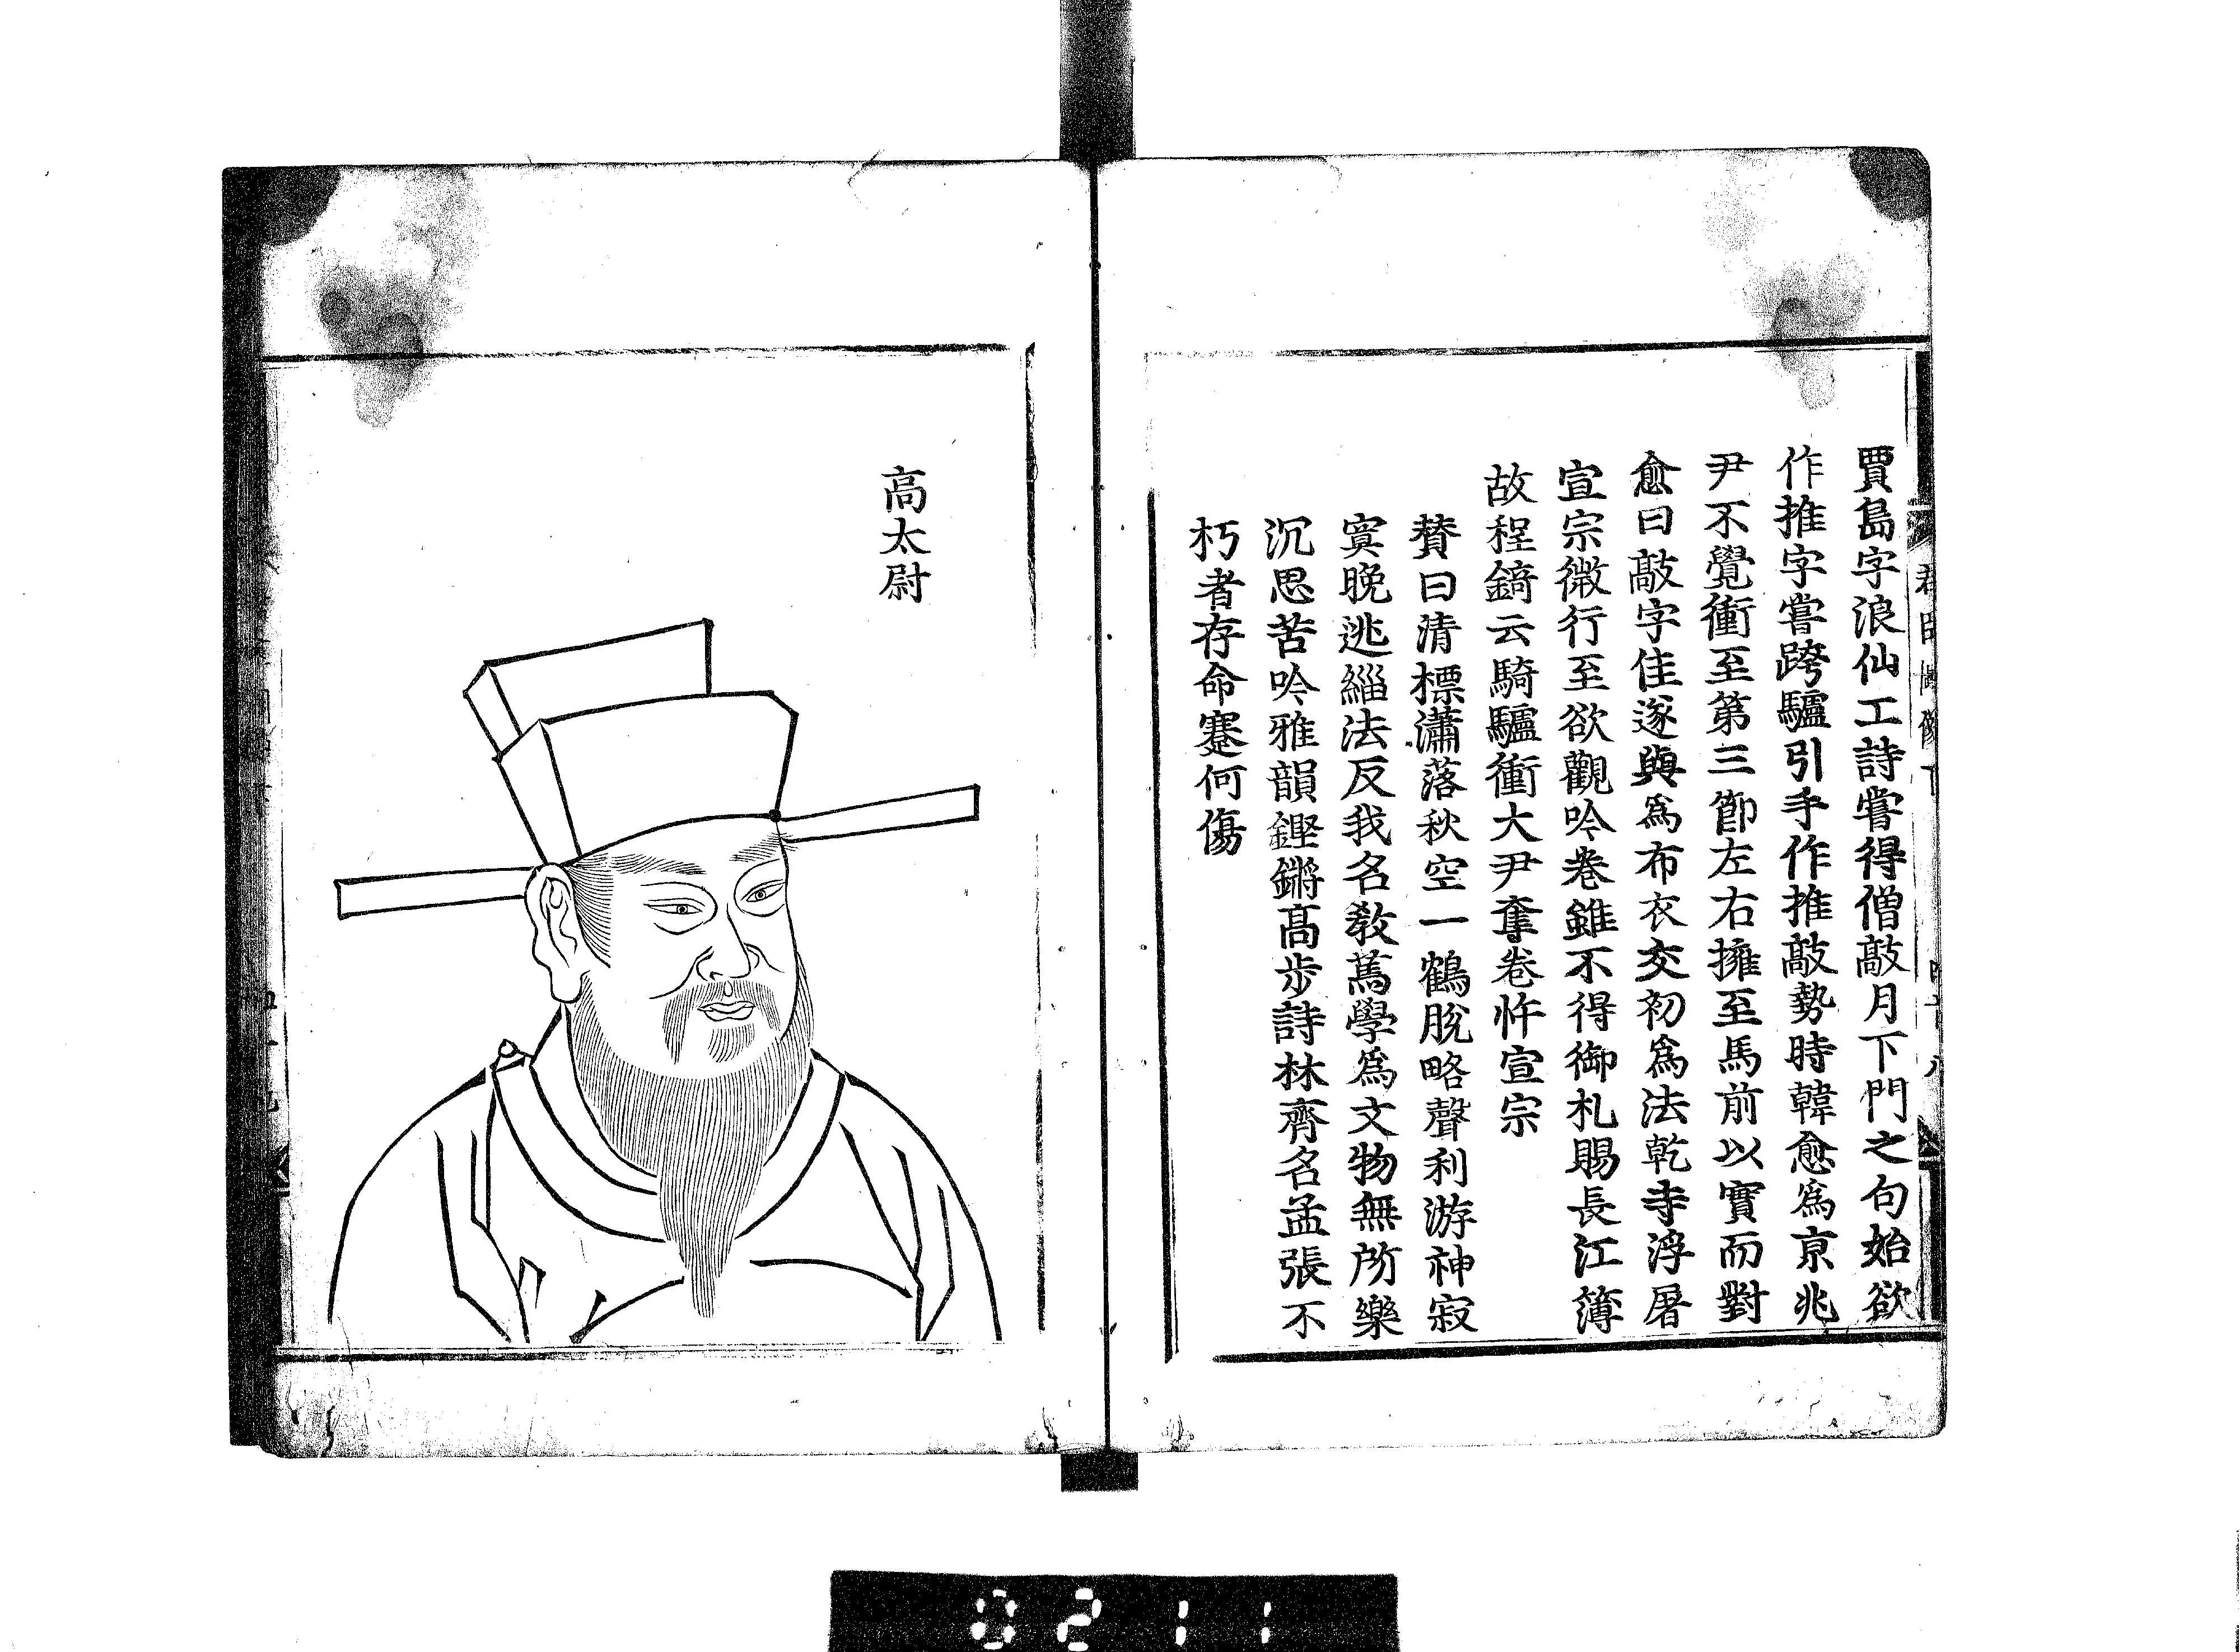 賈島字浪仙工詩嘗得僧敲月下門之句始欲
作推字嘗跨驢引手作推敲勢時韓愈爲京兆
尹不覺衝至第三節左右擁至馬前以實而對
愈曰敲字佳遂與爲布衣交初爲法乾寺浮屠
宣宗微行至欲觀吟卷雖不得御札賜長江簿
故程錡云騎驢衝大尹奪卷忤宣宗
賛曰清標瀟落秋空一鶴脫略聲利游神寂
寞晚逃緇法反我名教蔫學爲文物無所樂
沉思苦吟雅韻鏗鏘髙步詩林齊名孟張不
朽者存命蹇何傷
高太尉
0211